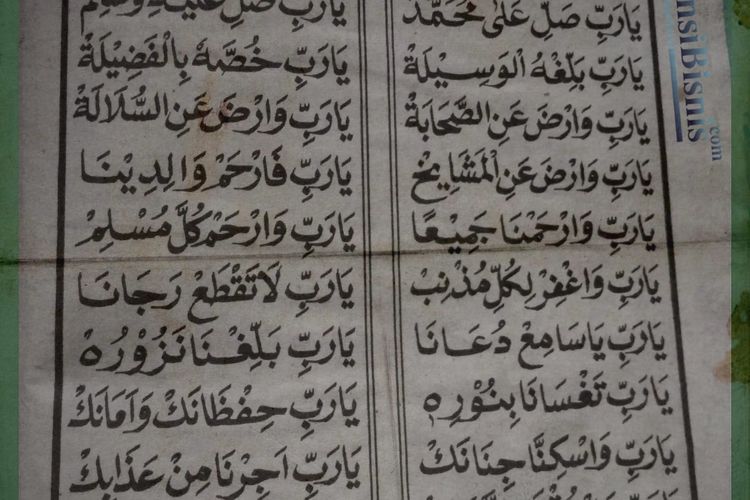 يَارَبِّ صَلِّ عَلٰى مُحَمَّدْ
يَارَبِّ صَلِّ عَلَيْهِ وَسَلِّمْ
يَارَبِّ بَلِّغْهُ الْوَسِيْلَةْ
يَارَبِّ خُصَّهُ بِالْفَضِيْلَةْ
يَارَبِّ وَارْضَ عَنِ الصَّحَابَةْ
يَارَبِّ وَارْضَ عَنِ السُّلَالَةْ
يَارَبِّ وَارْضَ عَنِ الْمَشَايِخْ
يَارَبِّ فَارْحَمْ وَالِدِيْنَا
يَارَبِّ وَارْحَمْنَا جَمِيْعًا
يَارَبِّ وَارْحَمْ كُلَّ مُسْلِمْ
يَارَبِّ وَاغْفِرْ لِكُلِّ مُذْنِبْ
يَارَبِّ لَاتَقْطَعْ رَجَانَا
يَارَبِّ يَاسَامِعْ دُعَانَا
يَارَبِّ بَلِّغْنَا نَزُوْرُهْ
يَارَبِّ تَغْسَانَا بِنُوْرِهْ
يَارَبِّ حِفْظَانَكْ وَاَمَانَكْ
يَارَبِّ وَاسْكِنَّا جِنَانَكْ
يَارَبِّ اَجِرْنَا مِنْ عَذَابِكْ
nsiBisnis
.com